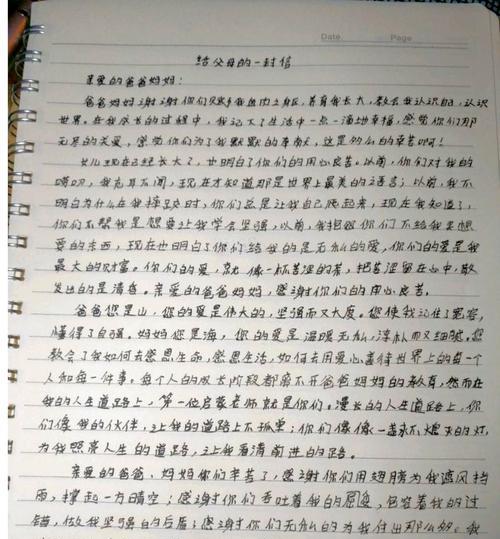 Date. Page
给父母的一封信
亲爱的爸爸妈妈:
爸爸妈妈谢谢你们赋予我血肉之躯,养育我长大,教会我认识自己,认识
世界。在我成长的过程中,我记下了生活中一点一滴的幸福,感觉你们那
无尽的关爱,感觉你们为了我默默的奉献,这是多么的幸苦啊!
女儿现在已经长大了,也明白了你们的用心良苦。以前,你们对我的
唠叨,我充耳不闻,现在才知道那是世界上最美的语言;以前,我不
明白为什么在我摔跤时,你们总是让我自己爬起来,现在我知道了,
你们不帮我是想要让我学会坚强,以前,我抱怨你们不给我想
要的东西,现在也明白了你们给我的是无私的爱,你们的爱是我
最大的财富。你们的爱,就像一杯苦涩的茗,把苦涩留在心中,散
发出的是清香。亲爱的爸爸妈妈,感谢你们的用心良苦。
爸爸您是山,您的爱是伟大的,坚强而又大度。您使我记住了宽容,
懂得了自强。妈妈您是海,您的爱是温暖无私,淳朴而又细腻。您
教会了我如何去感恩生命,感恩生活,如何去用爱心善待世界上的每一个
人和每一件事。每个人的成长阶段都离不开爸爸妈妈的教育,然而在
我的人生道路上,第一位启蒙老师就是你们。漫长的人生道路上,你
们像我的伙伴,让我的道路上不孤单;你们像像一盏永不熄灭的灯,
为我照亮人生的道路,让我看清前进的路。
亲爱的爸爸、妈妈你们辛苦了,感谢你们用翅膀为我遮风挡
雨,撑起一方晴空;感谢你们吞吐着我的,包容着我的过
错,做我坚强的后盾;感谢你们无私的为我付出那么多。我